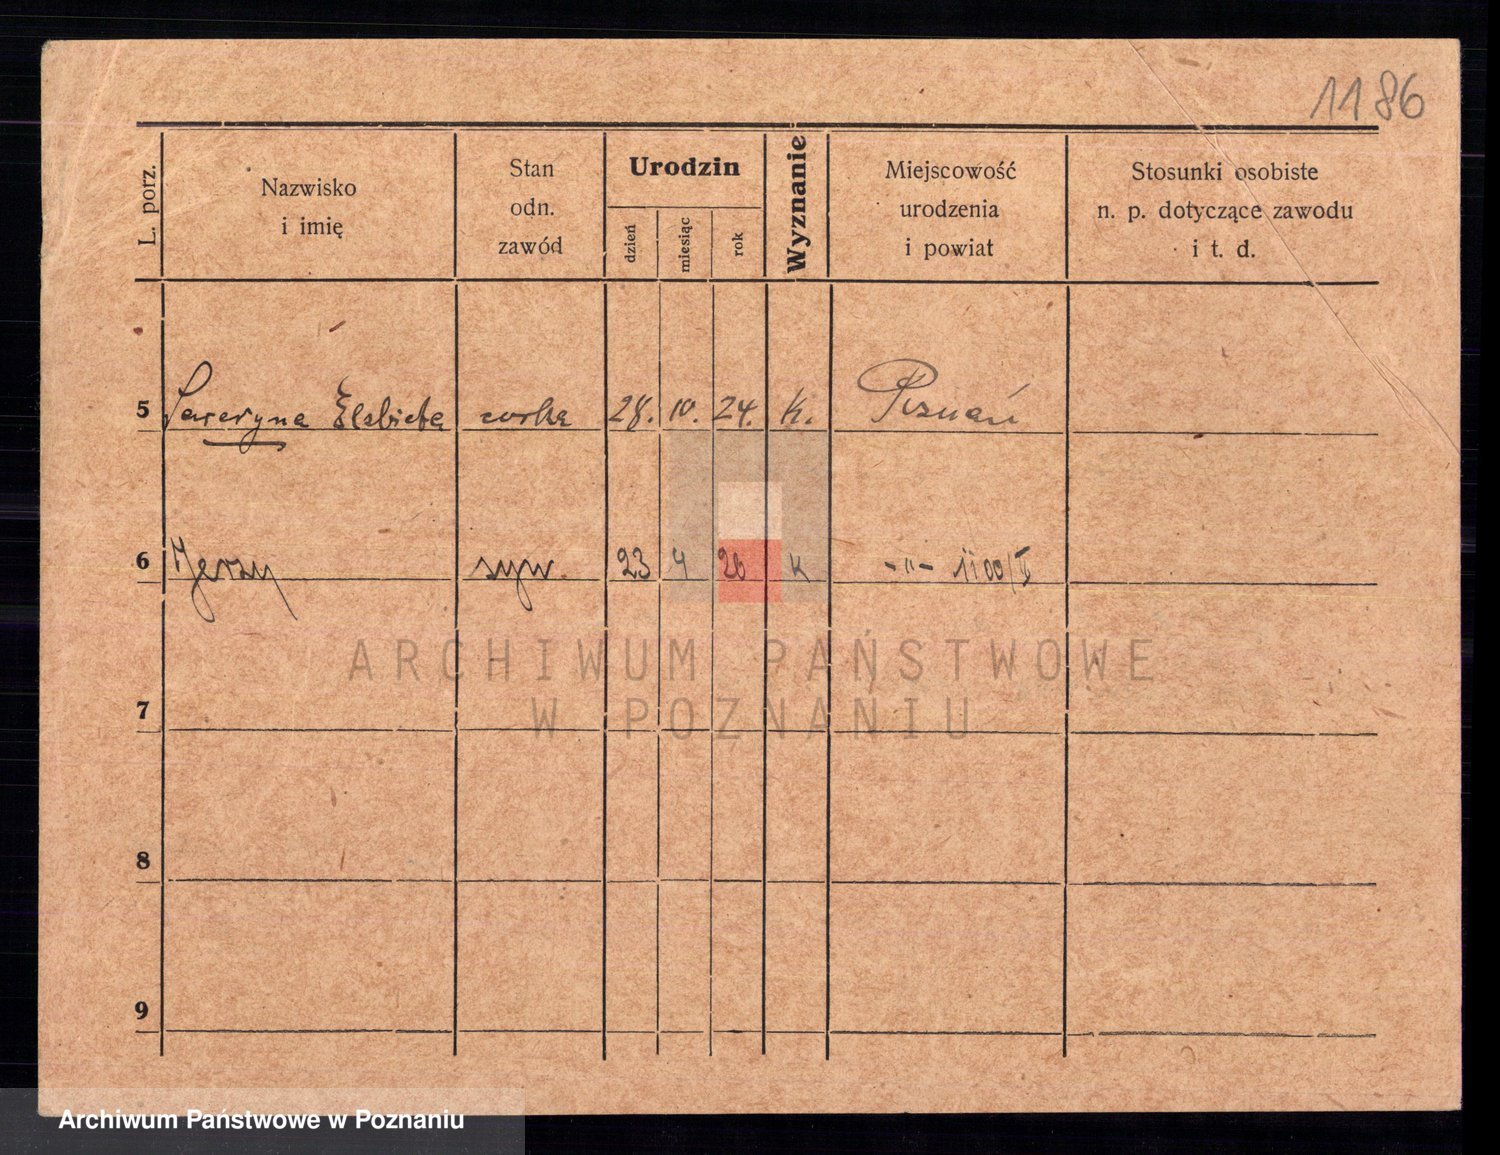 1186
L. porz.
Nazwisko
i imię
Stan
odn.
zawód
Urodzin
dzień
miesiąc
rok
Wyznanie
Miejscowość
urodzenia
i powiat
Stosunki osobiste
n. p. dotyczące zawodu
i t. d.
5 Seweryna Elżbieta córka 28. 10. 24. k. Poznań
6 Jerzy syn. 23 4 26 k -"-
7
8
9
ARCHIWUM PAŃSTWOWE
W POZNANIU
Archiwum Państwowe w Poznaniu